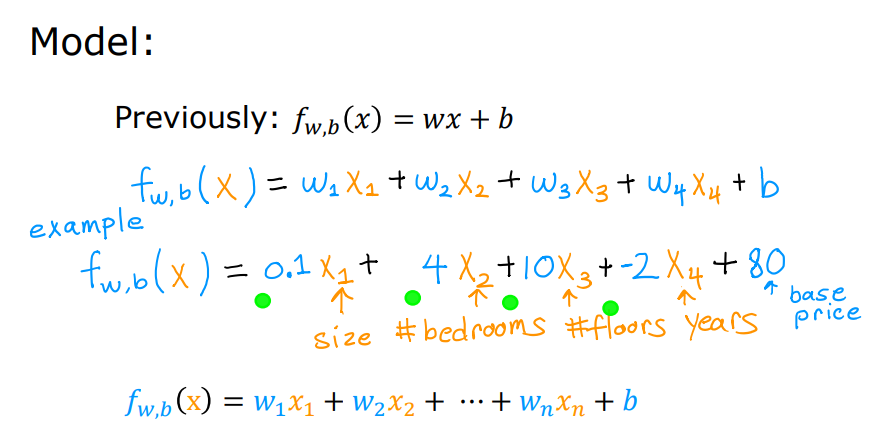 Model:
Previously: f_{w,b}(x) = wx + b
f_{w,b}(x) = w₁x₁ + w₂x₂ + w₃x₃ + w₄x₄ + b
example
f_{w,b}(x) = 0.1 x₁ + 4 x₂ + 10 x₃ + -2 x₄ + 80
size #bedrooms #floors years base price
f_{w,b}(x) = w₁x₁ + w₂x₂ + ⋯ + wₙxₙ + b